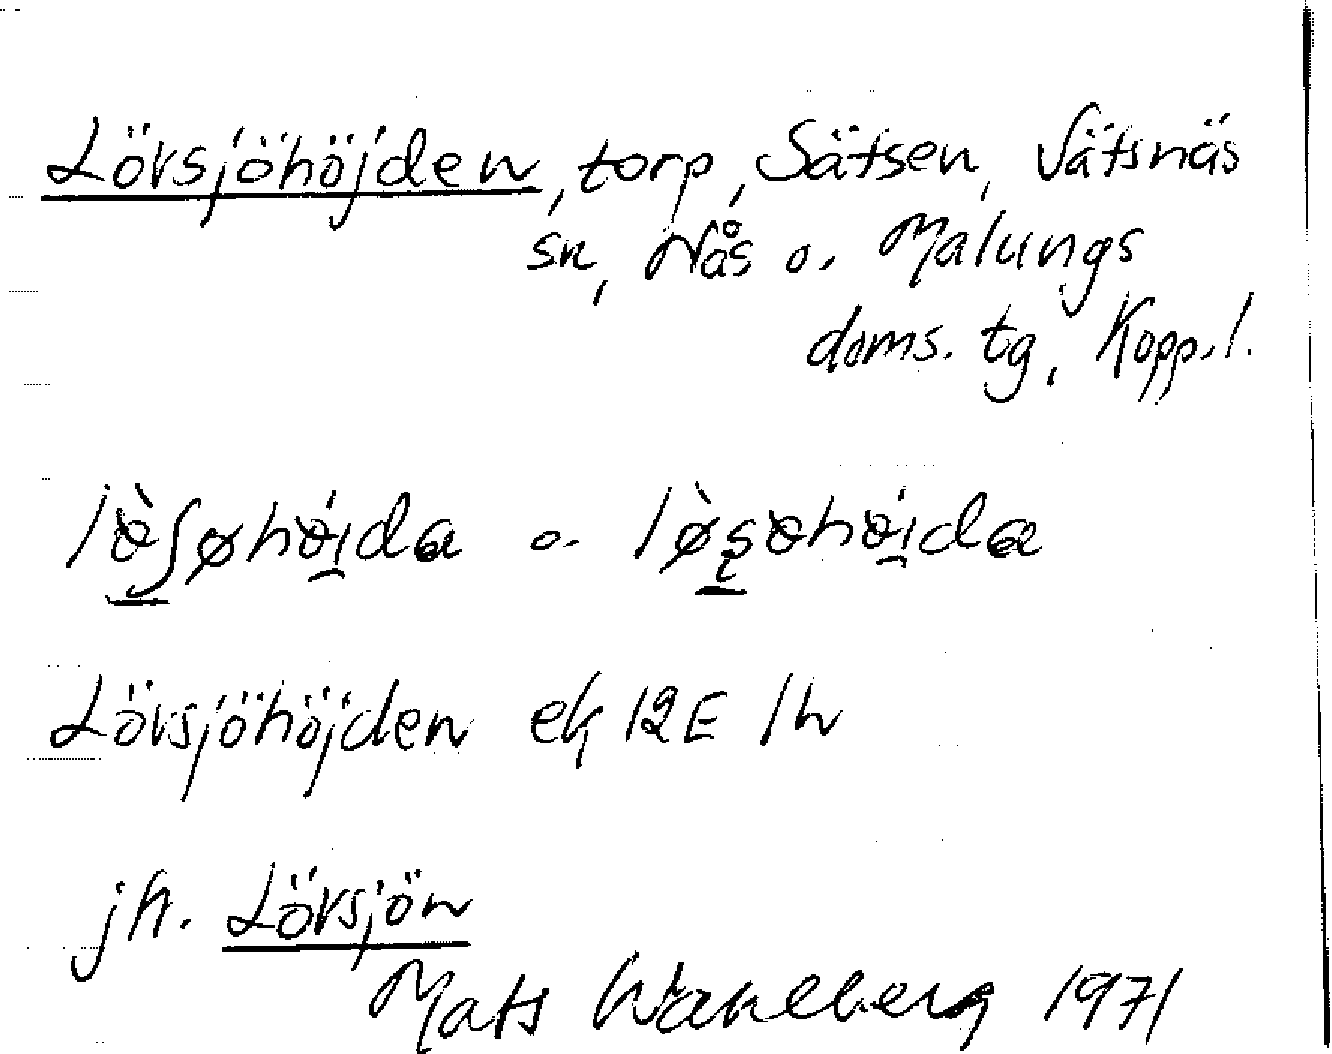 Lövsjöhöjden, torp, Sätsen, Sätsnäs
sn, Nås o. Malungs
doms. tg, Kopp. l.
o.
Lövsjöhöjden ek 12E 1h
jfr. Lövsjön
Mats Wahlberg 1971